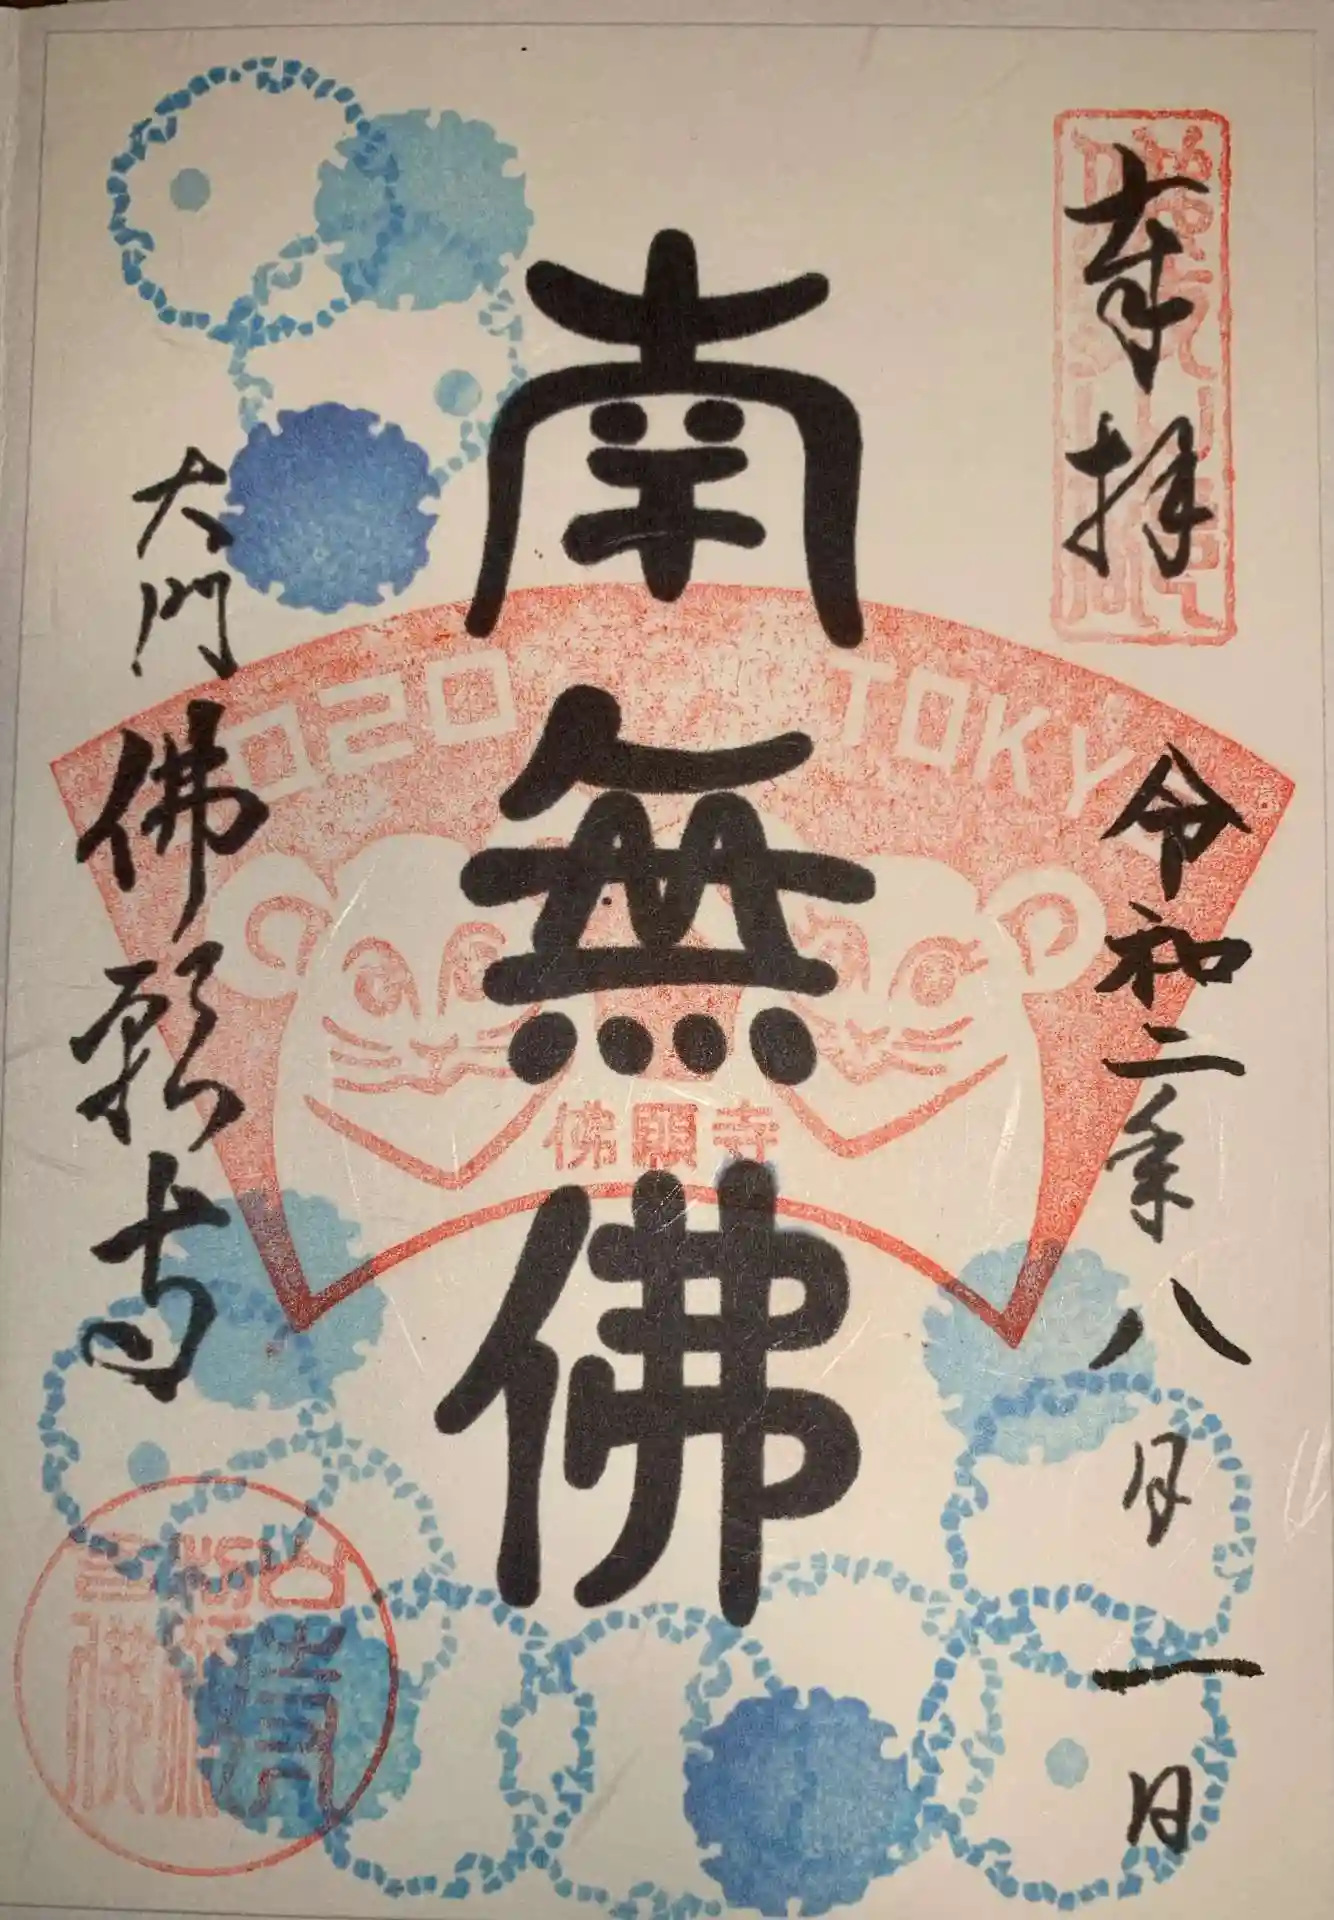 奉拝
令和二年八月一日
南無佛
2020 TOKY
佛願寺
大門
佛願寺